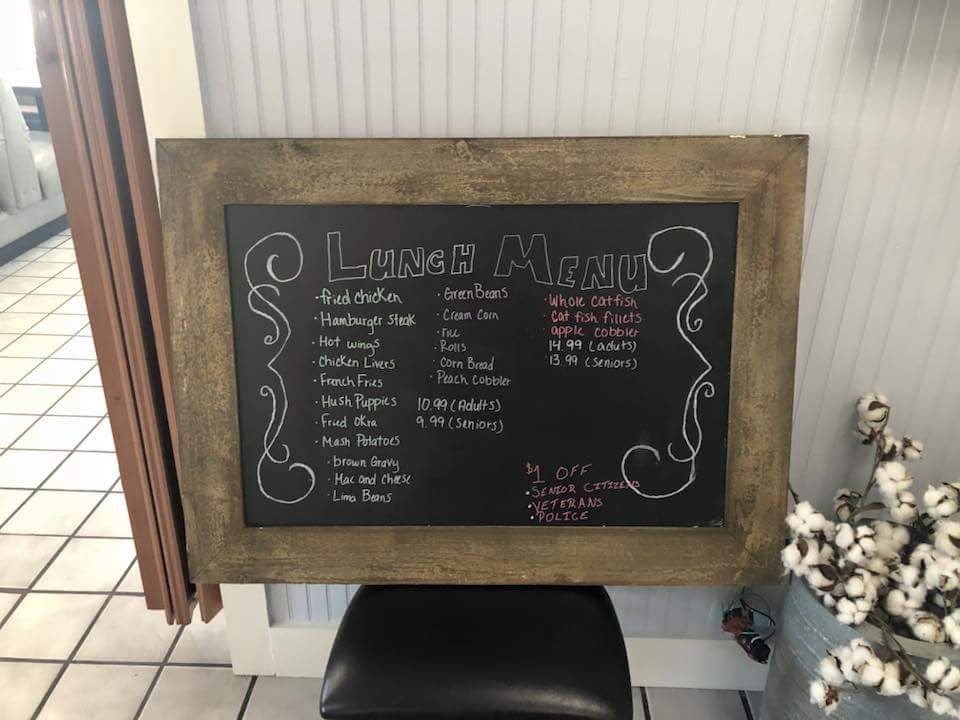 LUNCH MENU
• fried chicken
• Hamburger Steak
• Hot wings
• Chicken Livers
• French Fries
• Hush Puppies
• Fried Okra
• Mash Potatoes
• brown Gravy
• Mac and Cheese
• Lima Beans
• Green Beans
• Cream Corn
• rice
• Rolls
• Corn Bread
• Peach Cobbler
10.99 (Adults)
9.99 (Seniors)
• Whole catfish
• Cat fish fillets
• apple cobbler
14.99 (aduts)
13.99 (seniors)
$1 OFF
• SENIOR CITIZENS
• VETERANS
• POLICE